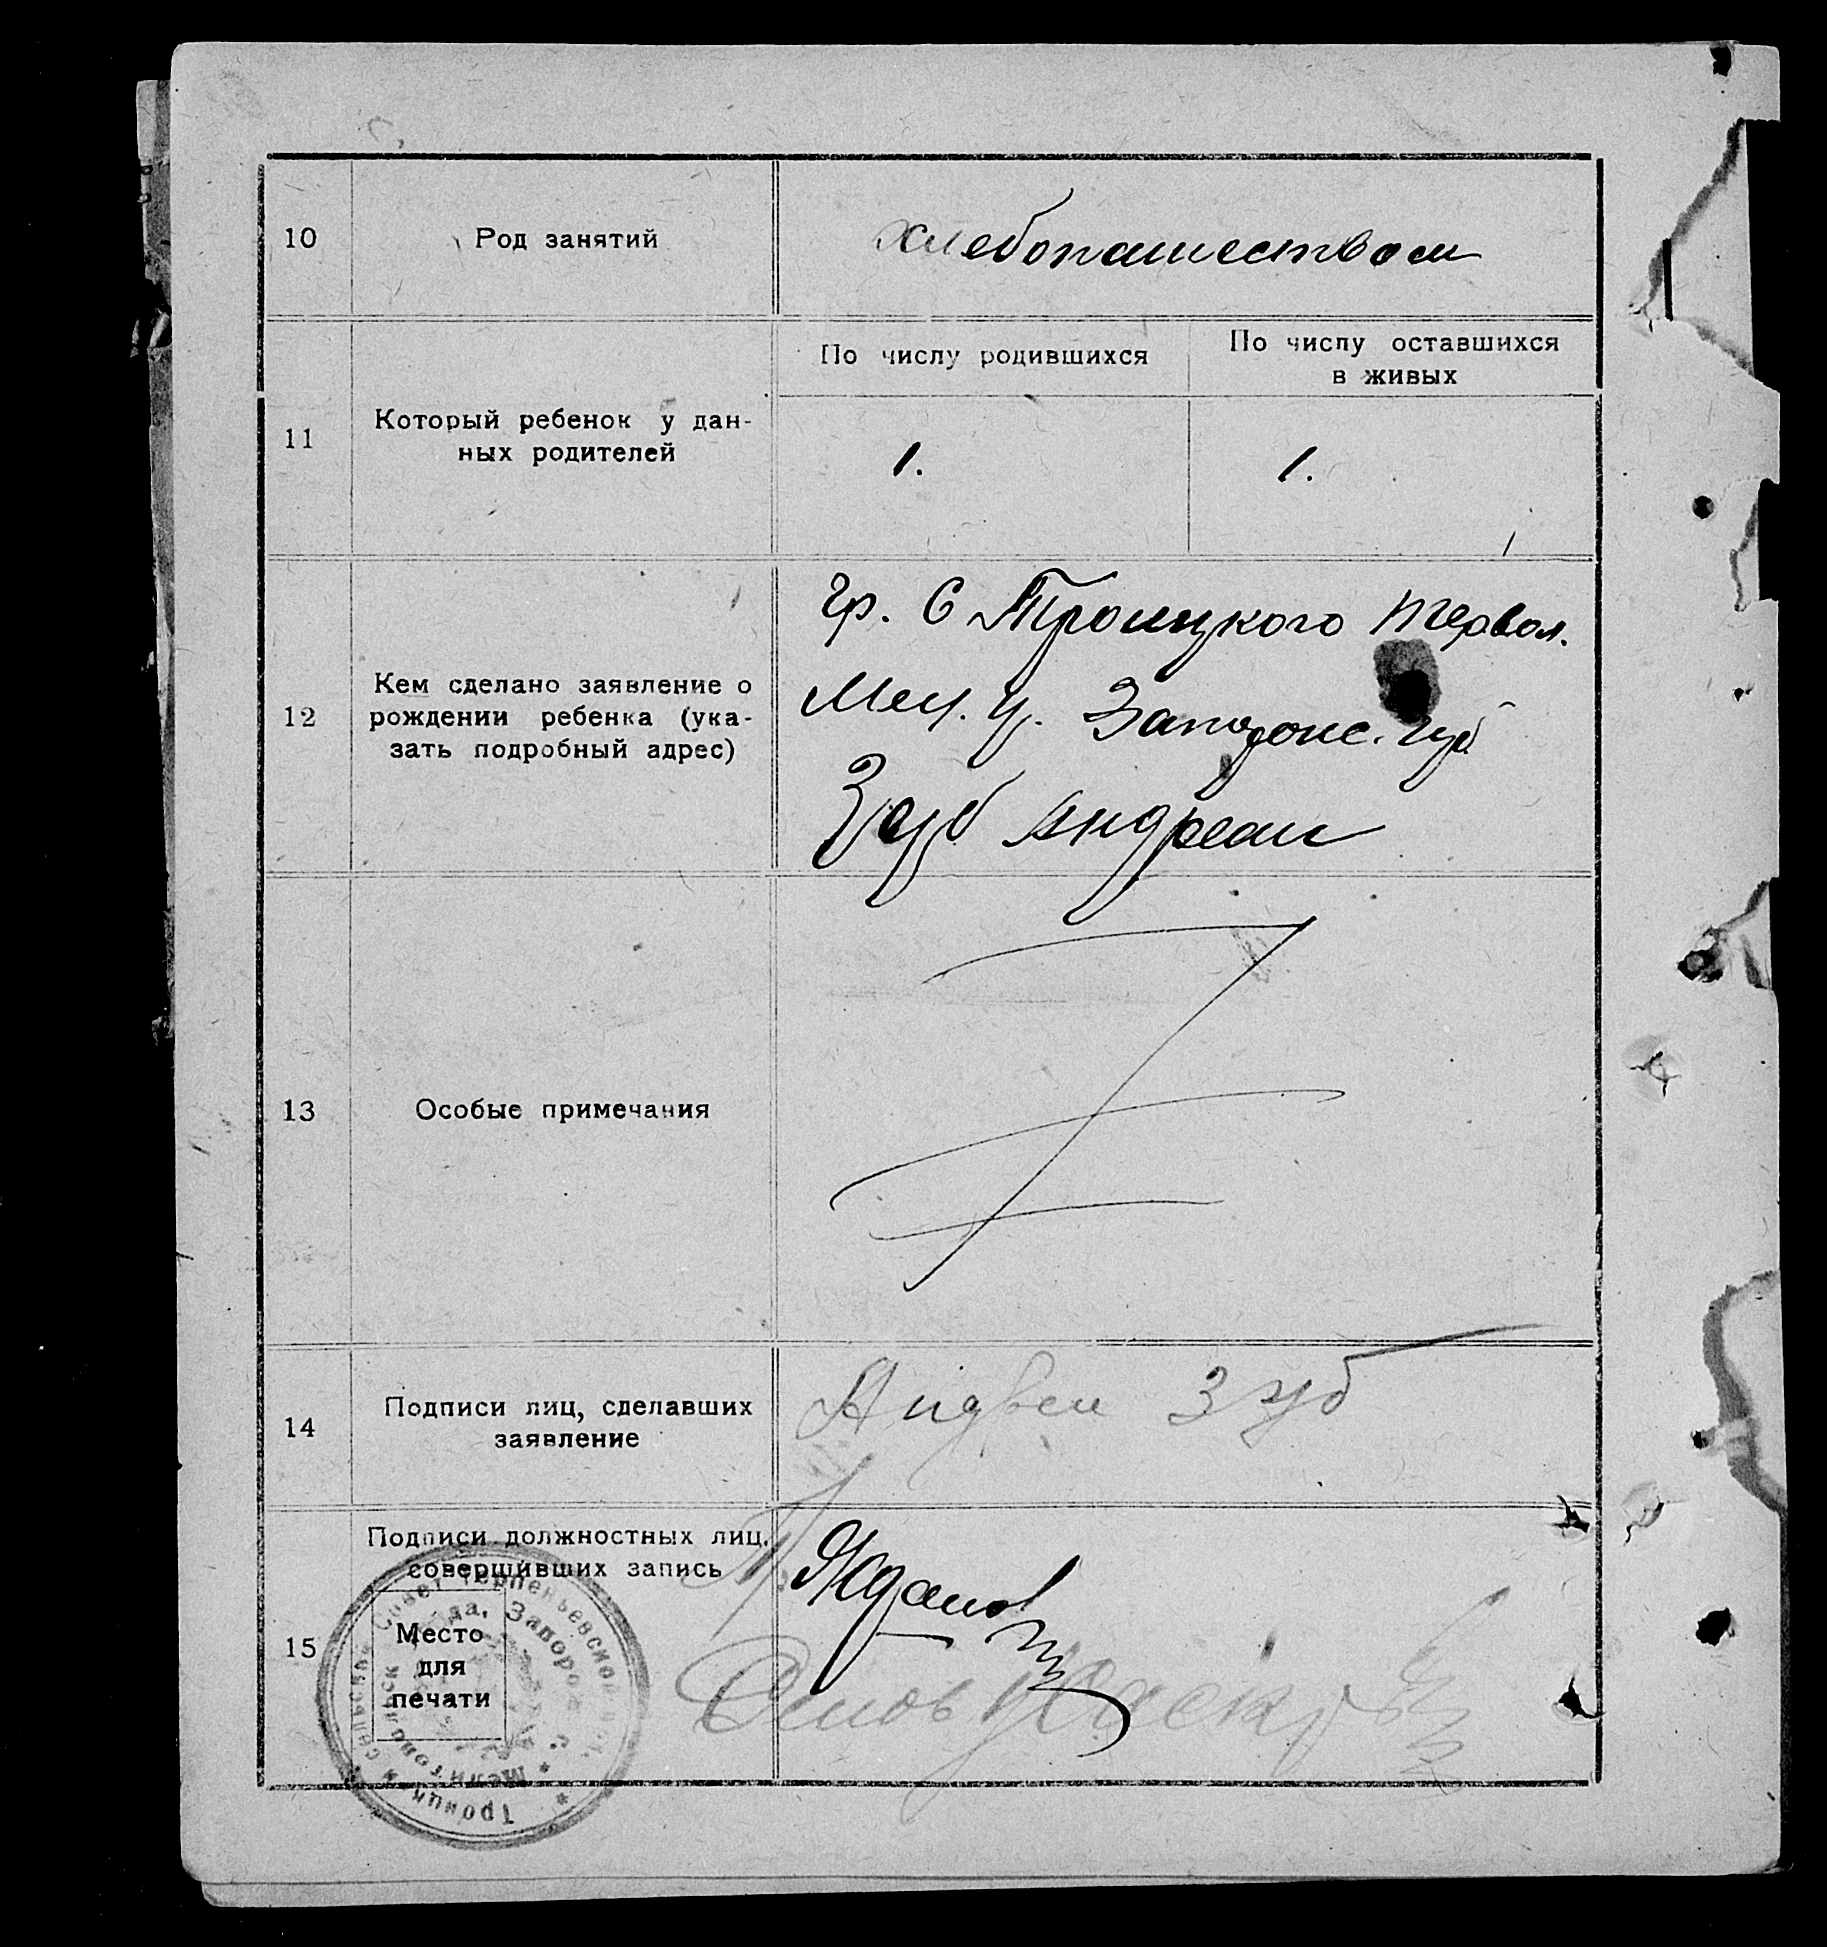 10 Род занятий хлебопашеством
11 Который ребенок у дан-
ных родителей
По числу родившихся
По числу оставшихся
в живых
1. 1.
12 Кем сделано заявление о
рождении ребенка (ука-
зать подробный адрес)
гр. С Троицкого Терпвол.
Мел. у. Запорожс. губ
Зуб Андреем
13 Особые примечания
14 Подписи лиц, сделавших
заявление
Андрей Зуб
15 Подписи должностных лиц,
совершивших запись
Место
для
печати
Жданов
Троицкий сельский Совет Терпеньевской вол.
Мелитопольск уезда, Запорож г.